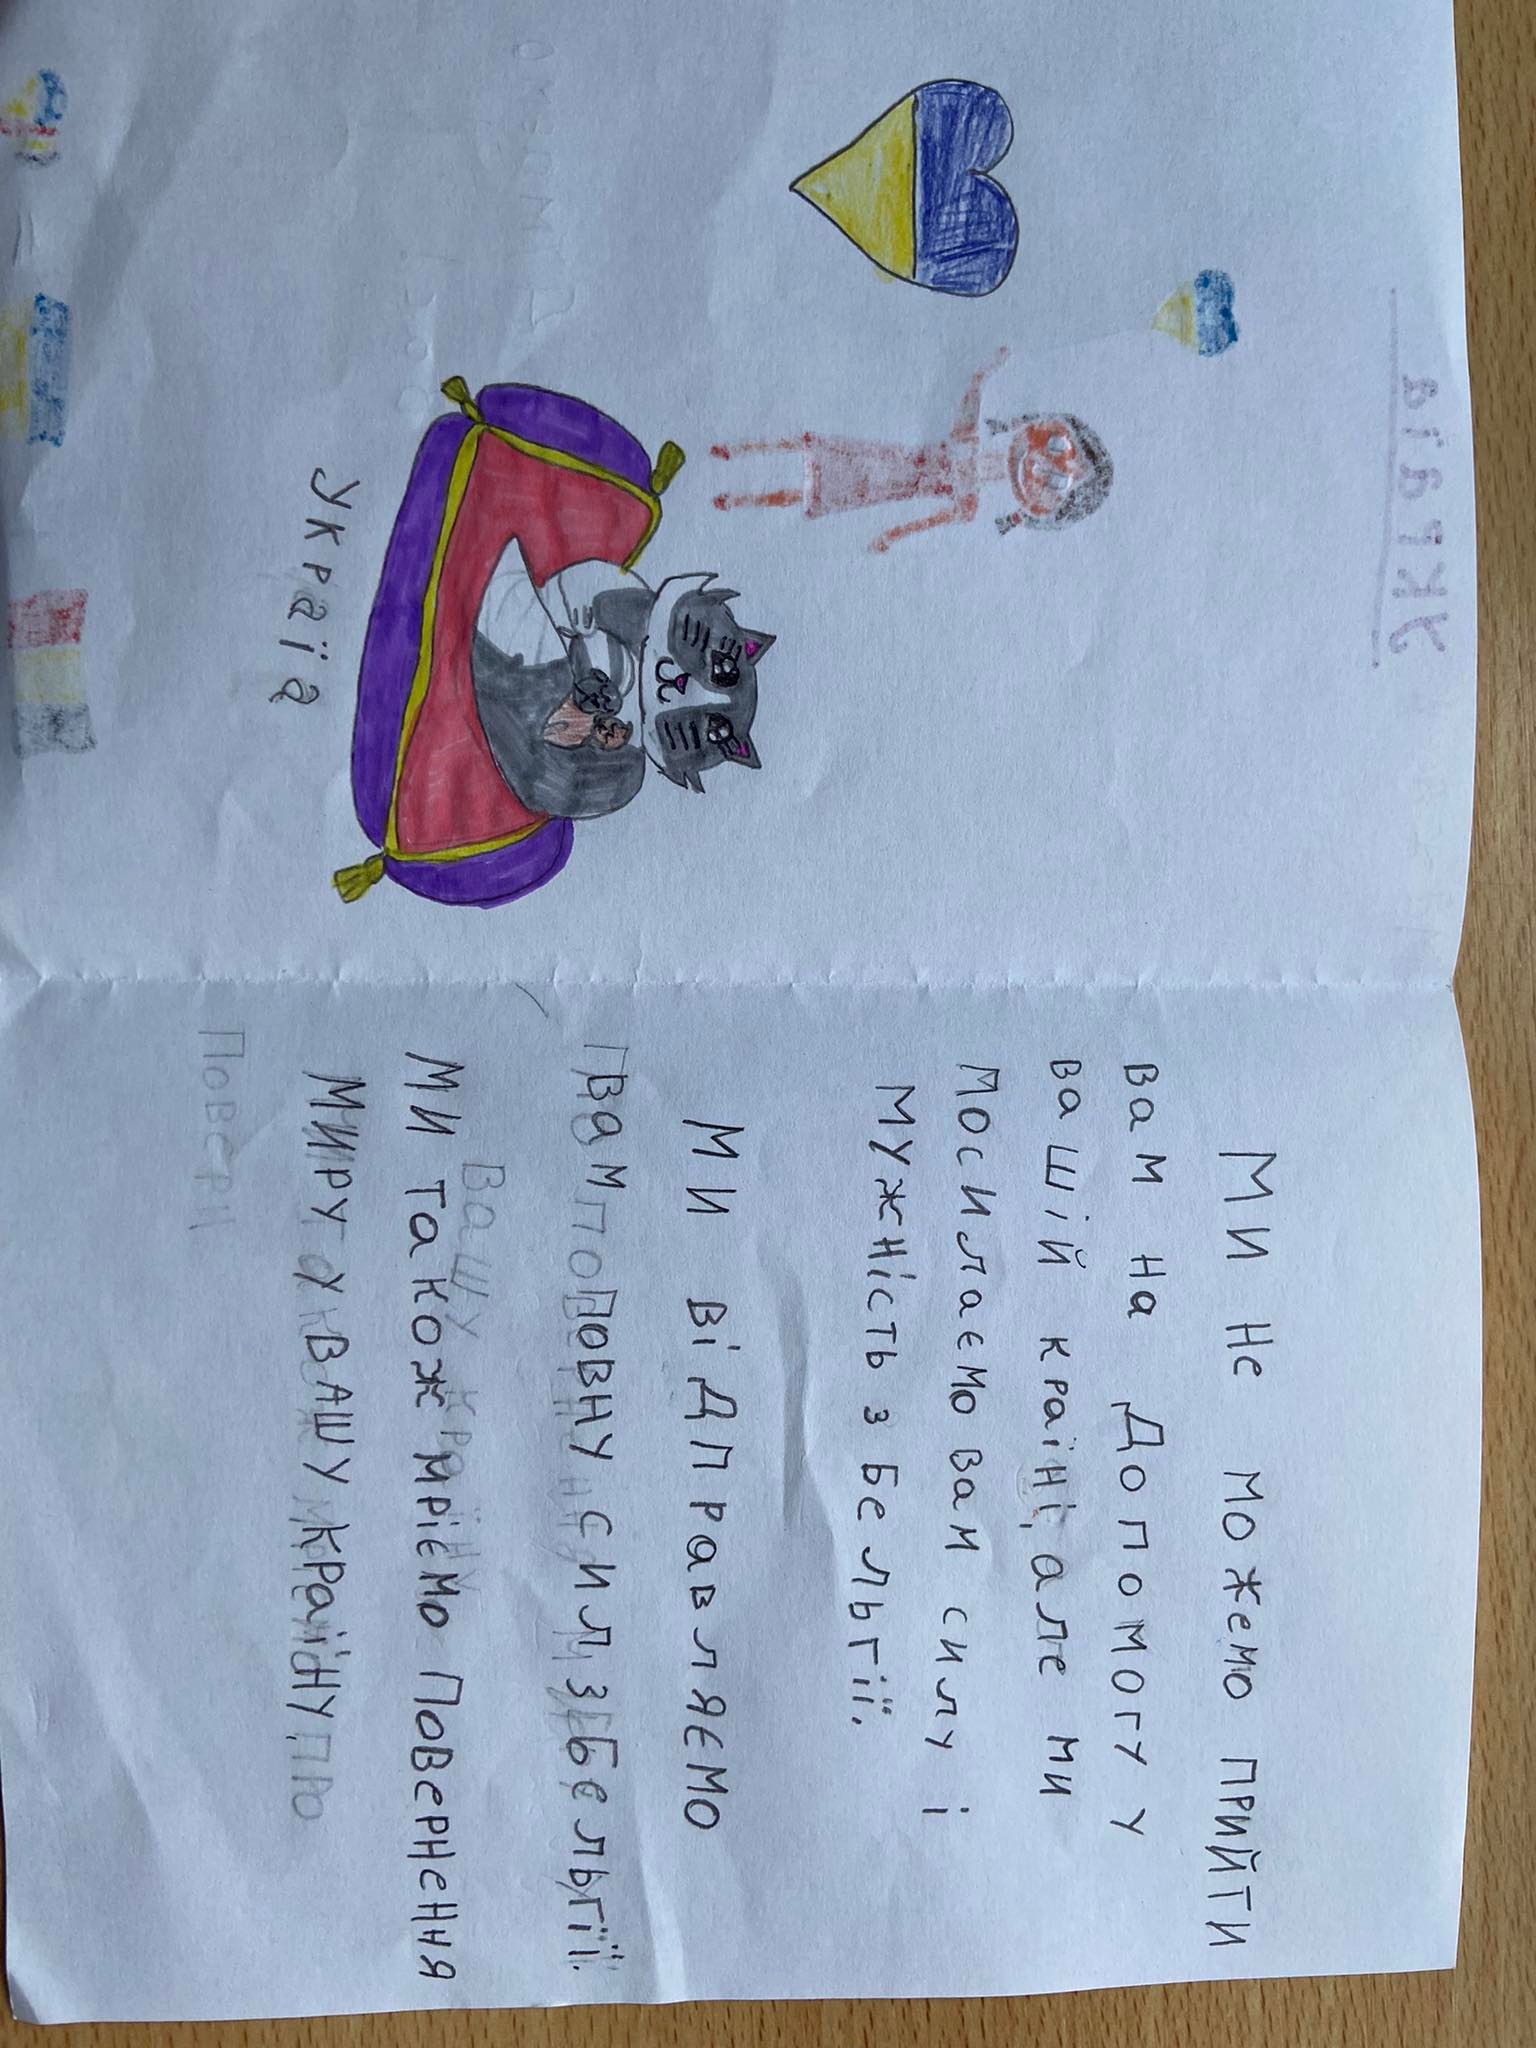 Україа
Ми не можемо прийти
вам на допомогу у
вашій країні, але ми
посилаємо вам силу і
мужність з Бельгії.
Ми відправляємо
вам повну сил з Бельгії.
Вашу країну
Ми також мріємо повернення
миру у вашу країну про
Повер